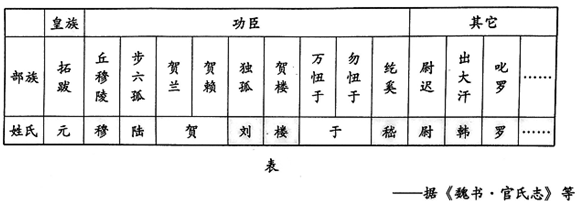 皇族 功臣 其它
部族 拓跋 丘穆陵 步六孤 贺兰 贺赖 独孤 贺楼 万忸于 勿忸于 纥奚 尉迟 出大汗 叱罗 ……
姓氏 元 穆 陆 贺 刘 楼 于 嵇 尉 韩 罗 ……
表
——据《魏书·官氏志》等